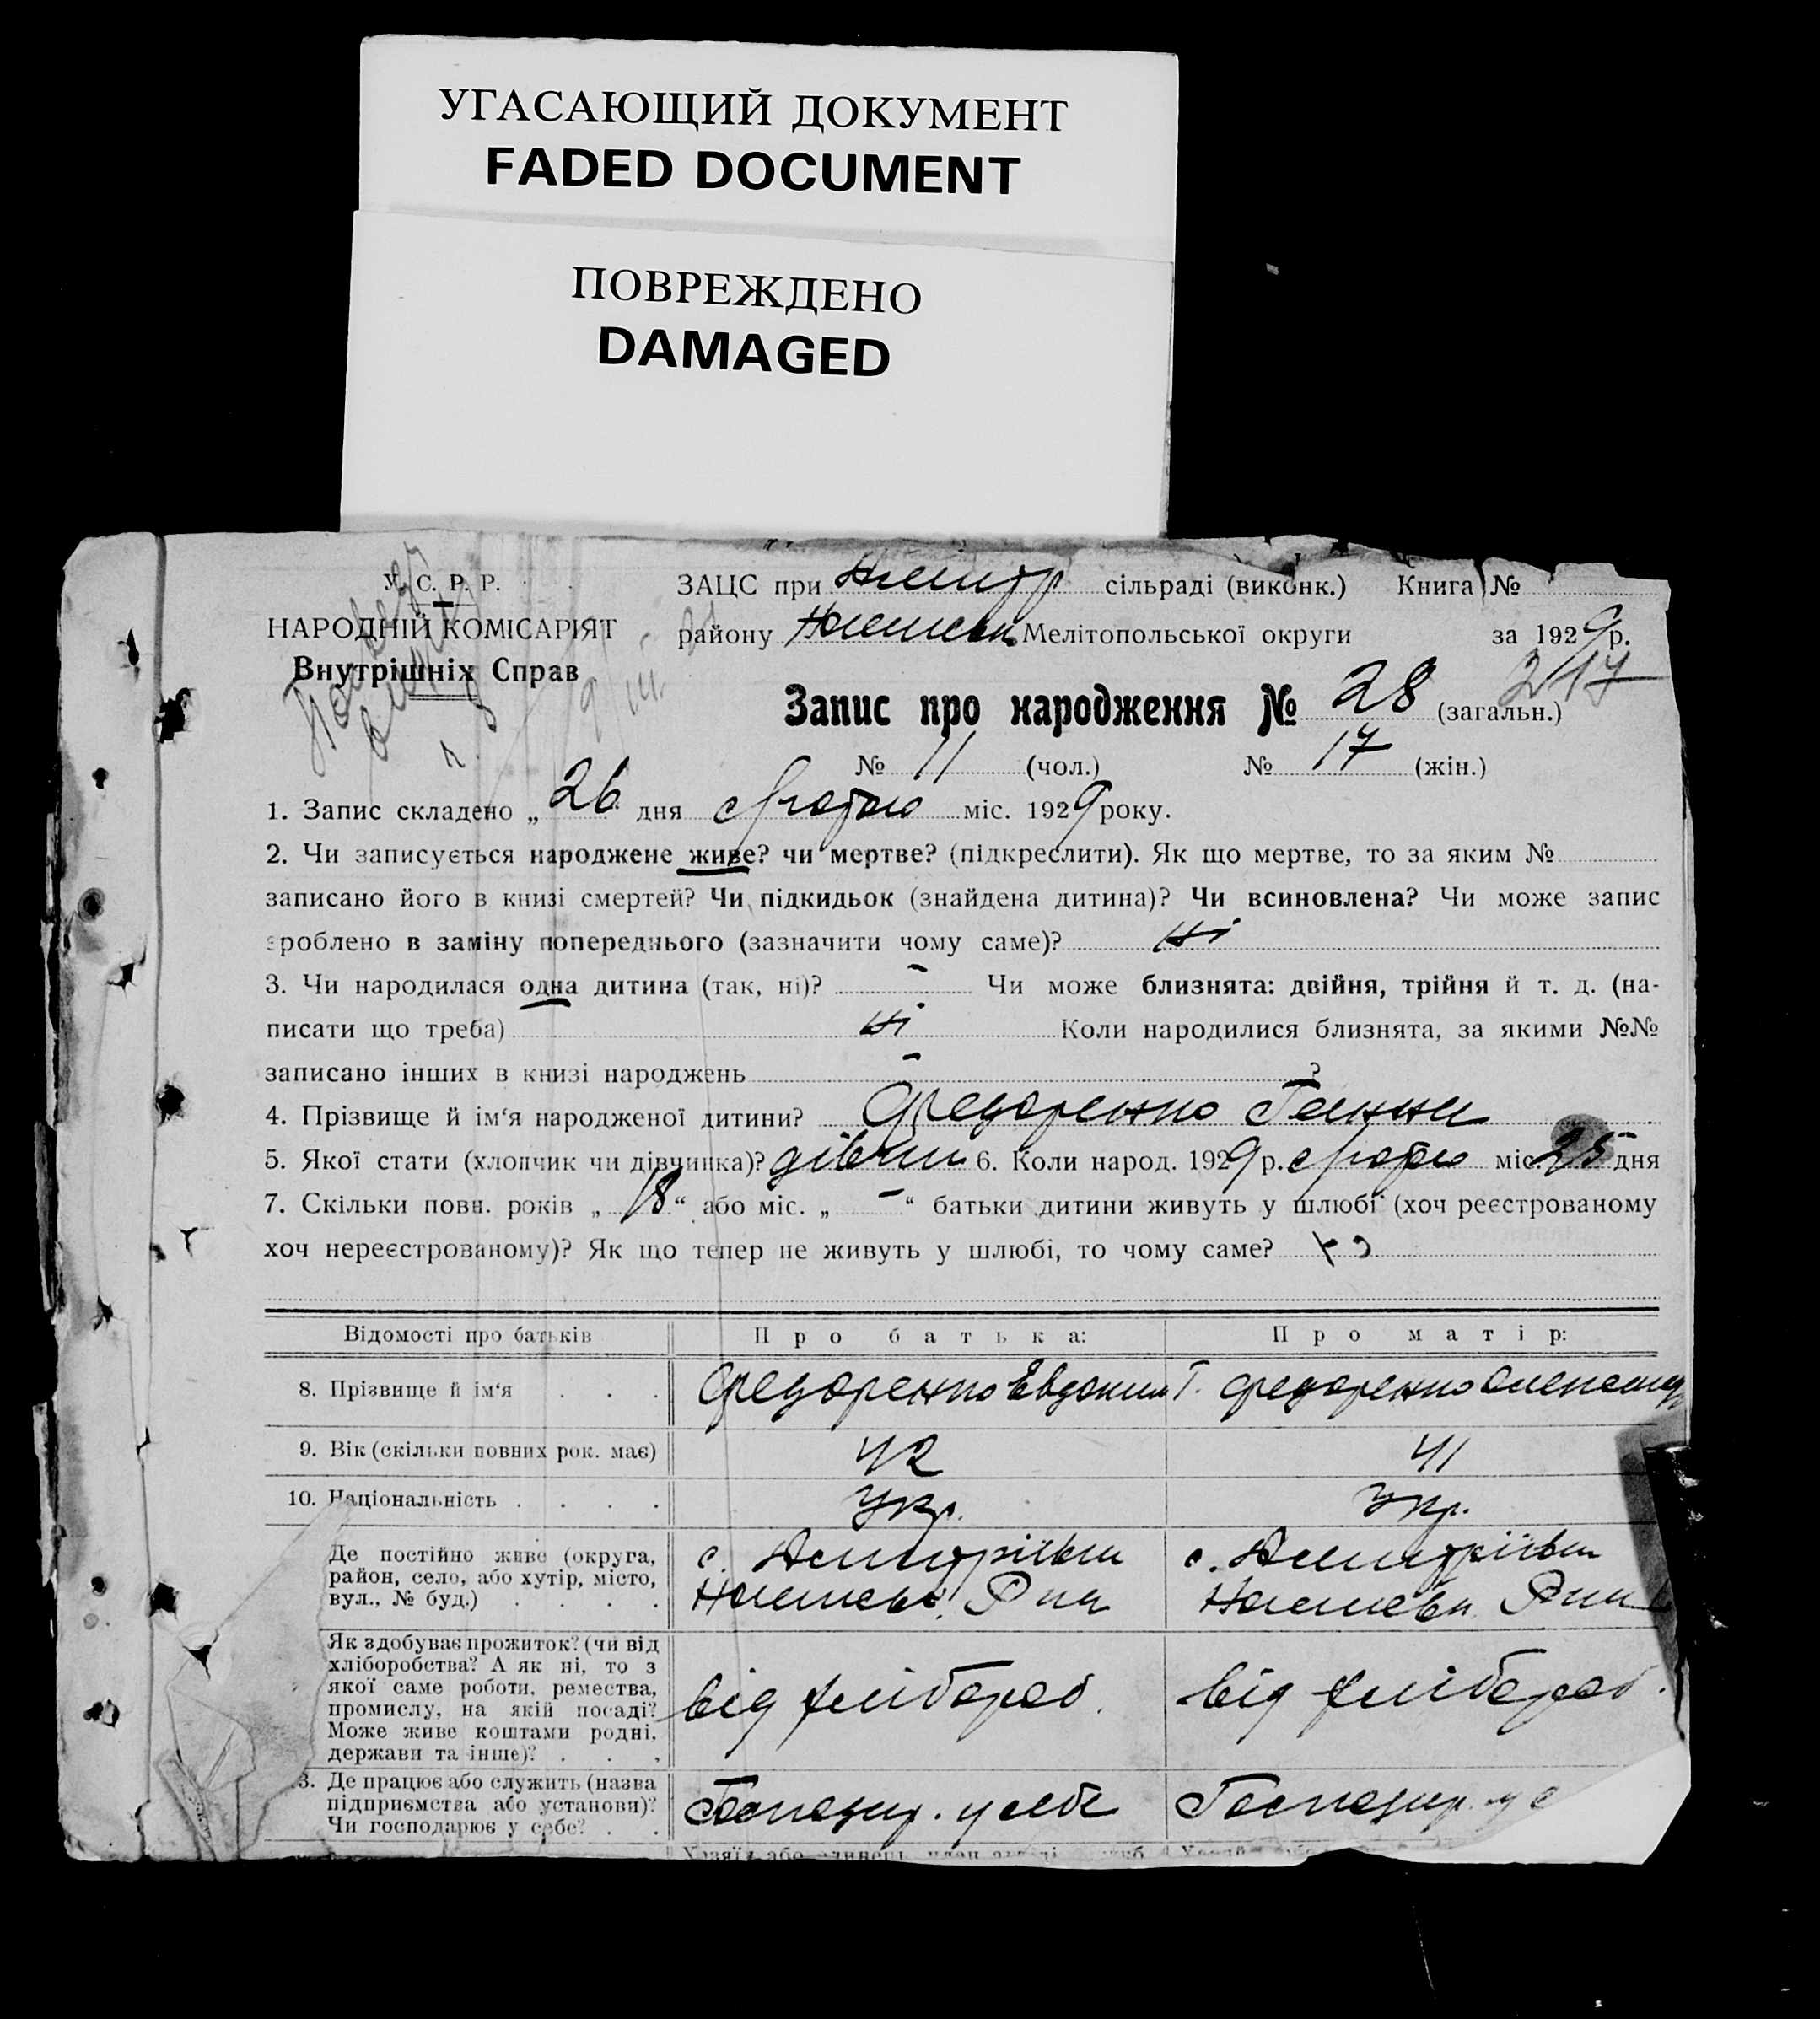 УГАСАЮЩИЙ ДОКУМЕНТ
FADED DOCUMENT
ПОВРЕЖДЕНО
DAMAGED
У. С. Р. Р.
НАРОДНІЙ КОМІСАРІЯТ
Внутрішніх Справ
ЗАЦС при сільраді (виконк.) Книга №
району Мелітопольської округи за 1929 р.
217
Запис про народження № 28 (загальн.)
№ 11 (чол.) № 17 (жін.)
1. Запис складено „ 26 дня лютого міс. 1929 року.
2. Чи записується народжене живе? чи мертве? (підкреслити). Як що мертве, то за яким №
записано його в книзі смертей? Чи підкидьок (знайдена дитина)? Чи всиновлена? Чи може запис
зроблено в заміну попереднього (зазначити чому саме)? ні
3. Чи народилася одна дитина (так, ні)? – Чи може близнята: двійня, трійня й т. д. (на-
писати що треба) ні Коли народилися близнята, за якими №№
записано інших в книзі народжень – ?
4. Прізвище й ім‘я народженої дитини? Федоренко Ганна
5. Якої стати (хлопчик чи дівчинка)? дівчин 6. Коли народ. 1929 р. лютого міс. 25 дня
7. Скільки повн. років „ 18 “ або міс. „ – “ батьки дитини живуть у шлюбі (хоч реєстрованому
хоч нереєстрованому)? Як що тепер не живуть у шлюбі, то чому саме?
Відомості про батьків Про батька: Про матір:
8. Прізвище й ім‘я . . . Федоренко Євдоким Т. Федоренко Олександр
9. Вік (скільки повних рок. має) 42 41
10. Національність . . . . Укр. Укр.
Де постійно живе (округа,
район, село, або хутір, місто,
вул., № буд.) . . . .
с. Димитрівка
Р-на
с. Димитрівка
Р-на
Як здобуває прожиток? (чи від
хліборобства? А як ні, то з
якої саме роботи, ремества,
промислу, на якій посаді?
Може живе коштами родні,
держави та інше)? . . .
від хлібороб.
від хлібороб.
3. Де працює або служить (назва
підприємства або установи)?
Чи господарює у себе? . .
Господар. у себе
Господар. у с